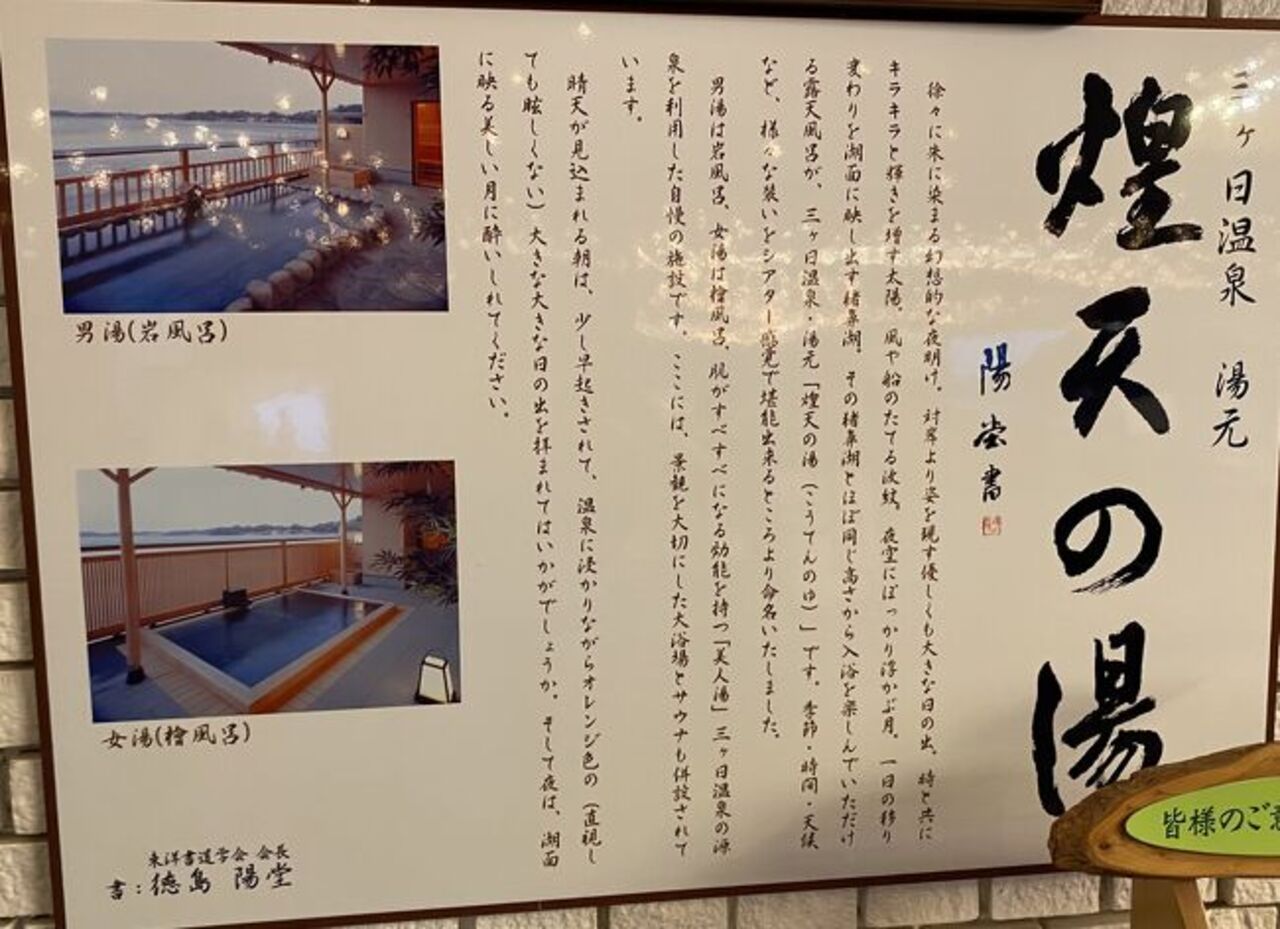 三ヶ日温泉 湯元
煌天の湯
陽堂書
徐々に朱に染まる幻想的な夜明け。対岸より姿を現す優しくも大きな日の出。時と共に
キラキラと輝きを増す太陽。風や船のたてる波紋。夜空にぽっかり浮かぶ月。一日の移り
変わりを湖面に映し出す猪鼻湖。その猪鼻湖とほぼ同じ高さから入浴を楽しんでいただけ
る露天風呂が、三ヶ日温泉・湯元「煌天の湯(こうてんのゆ)」です。季節・時間・天候
など、様々な装いをシアター感覚で堪能出来るところより命名いたしました。
男湯は岩風呂、女湯は檜風呂、肌がすべすべになる効能を持つ「美人湯」三ヶ日温泉の源
泉を利用した自慢の施設です。ここには、景観を大切にした大浴場とサウナも併設されて
います。
晴天が見込まれる朝は、少し早起きされて、温泉に浸かりながらオレンジ色の(直視し
ても眩しくない)大きな大きな日の出を拝まれてはいかがでしょうか。そして夜は、湖面
に映る美しい月に酔いしれてください。
男湯(岩風呂)
女湯(檜風呂)
東洋書道学会 会長
書:徳島 陽堂
皆様のご意